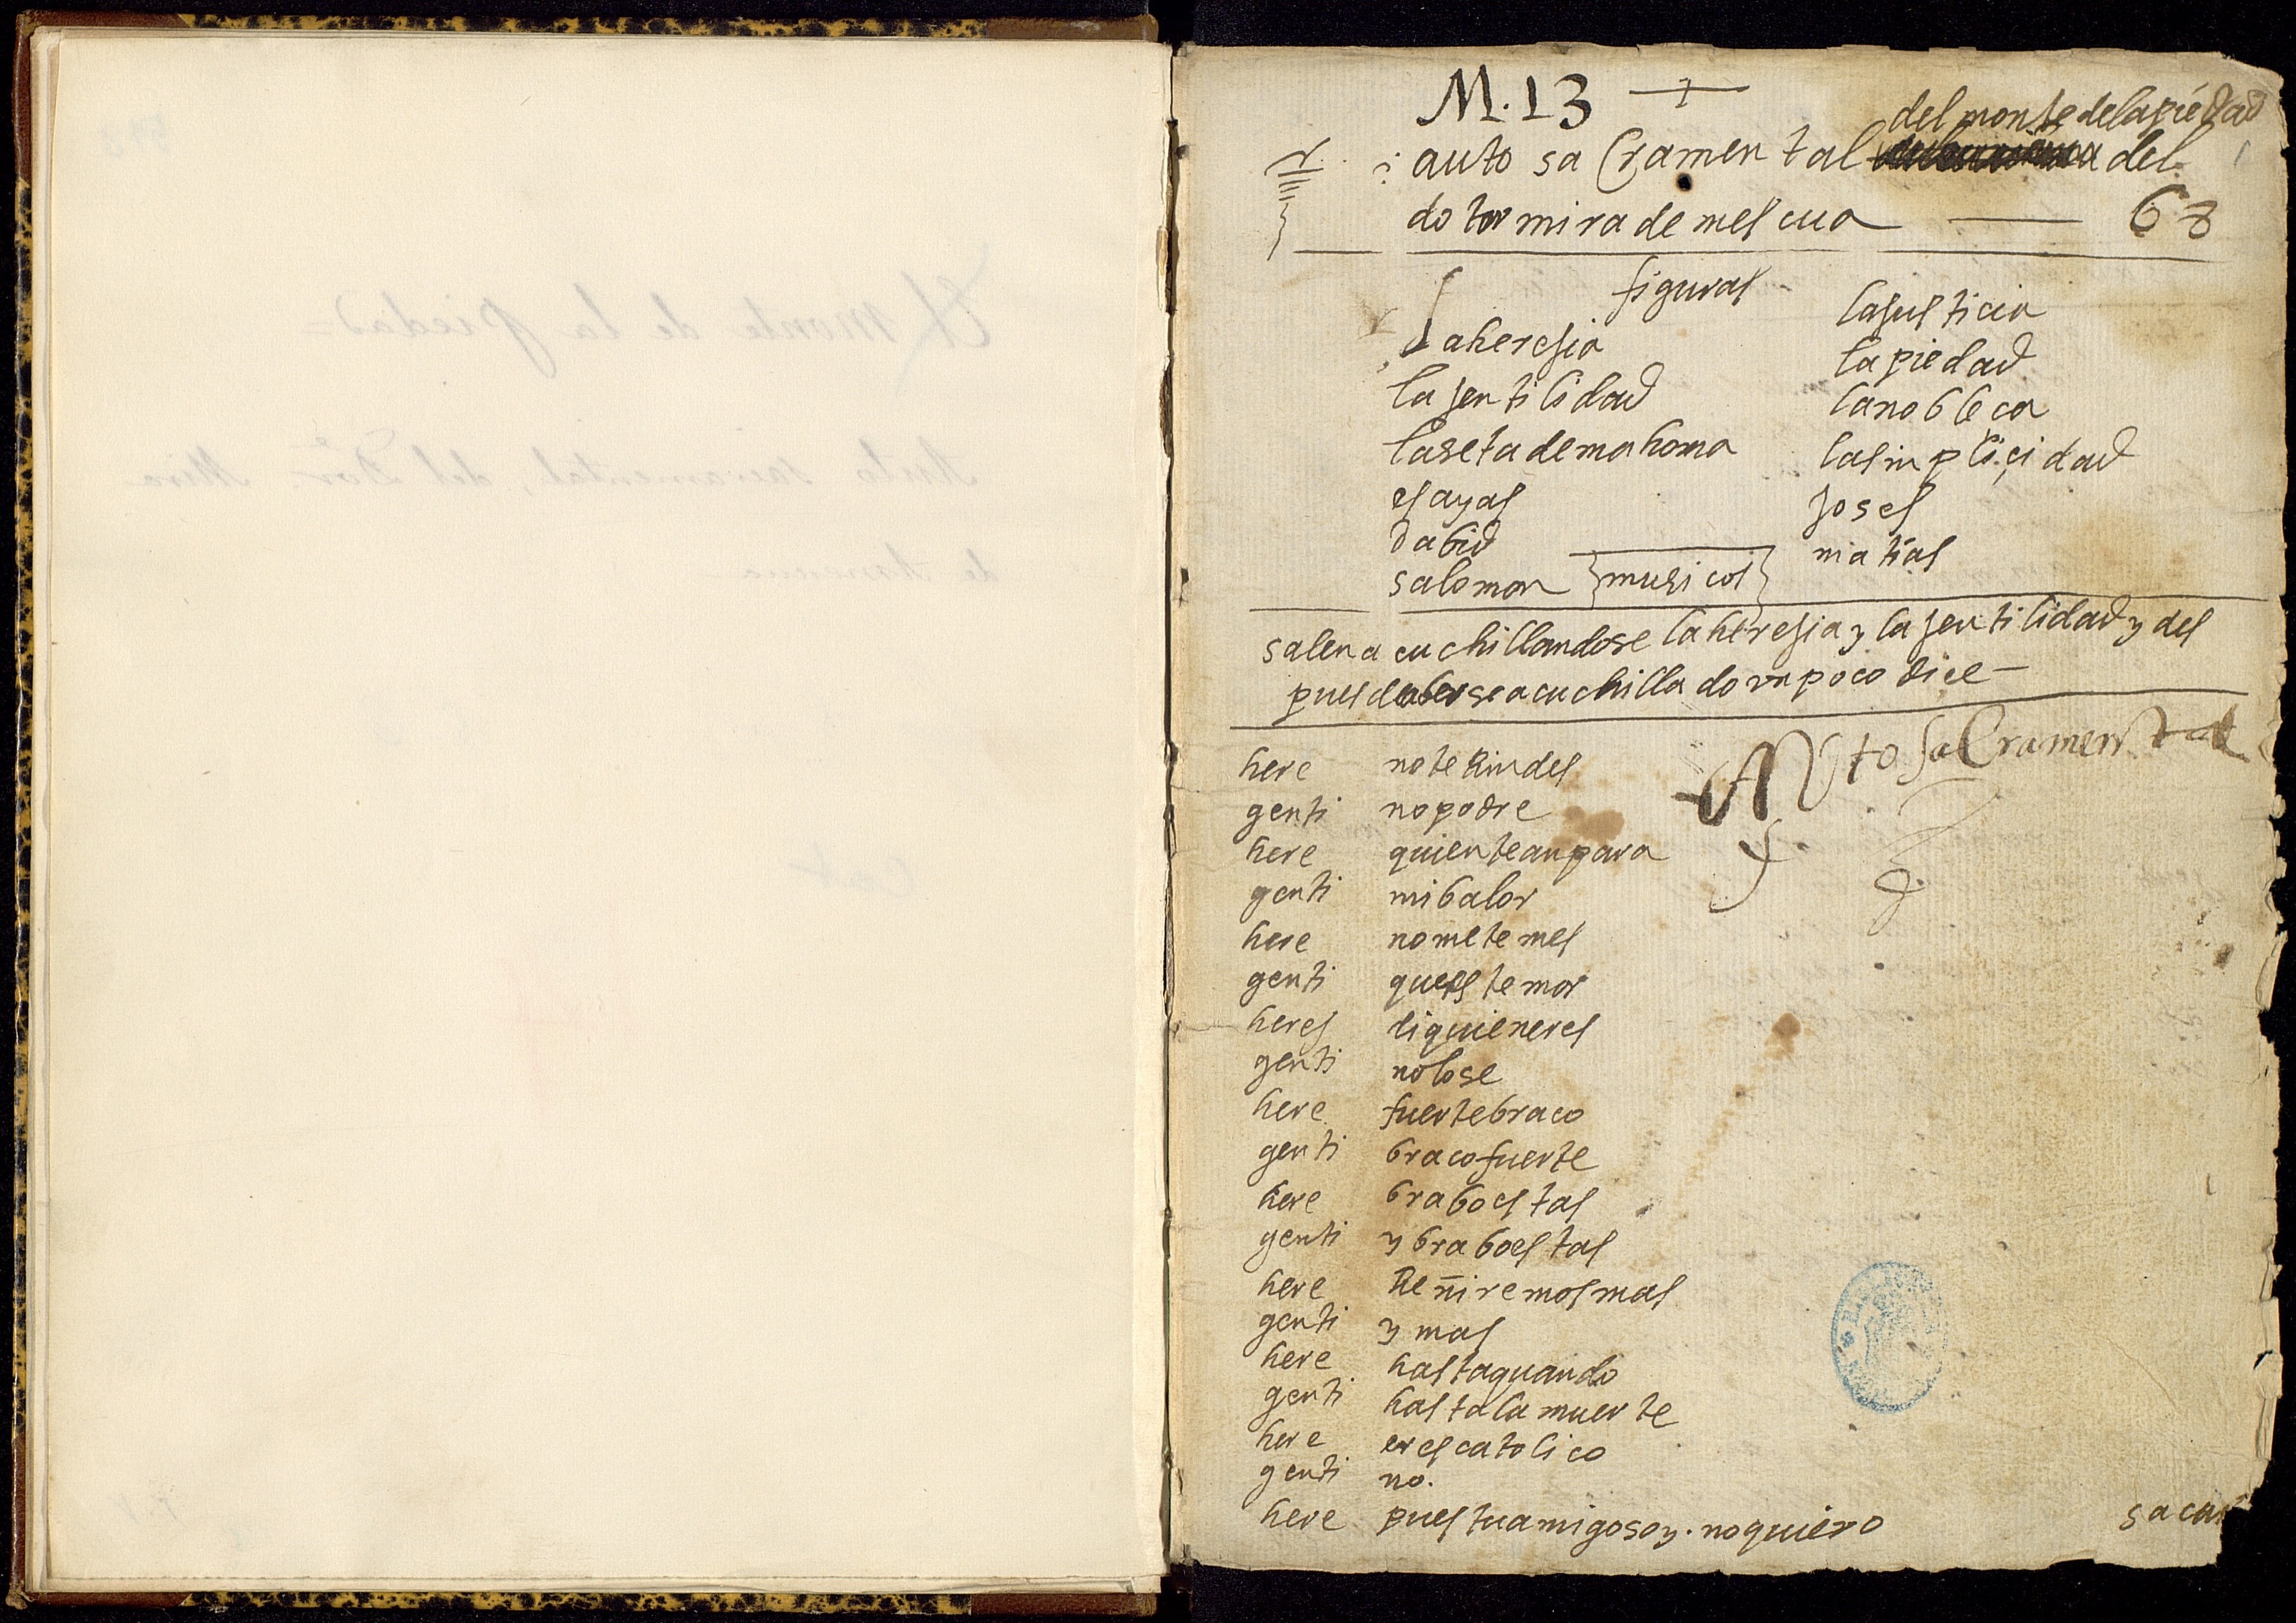 M.13
del monte dela piedad
auto sacramental del
dotor mira de mescua 68
figuras
la heresia
la jentilidad
la seta de mahoma
esayas
dabid
salomon
musicos
la justicia
la piedad
la nobleca
la sinplicidad
josef
matias
salen acuchillandose la heresia y la jentilidad y des
pues de aberse acuchillado vn poco dice
Auto sacramental
here no te Rindes
genti no podre
here quien te anpara
genti mi balor
here no me temes
genti que es temor
heres di quien eres
genti no lo se
here fuerte braco
genti braco fuerte
here brabo estas
genti y brabo estas
here Reñiremos mas
genti y mas
here hasta quando
genti hasta la muerte
here eres catolico
genti no.
here pues tu amigo soy. no quiero